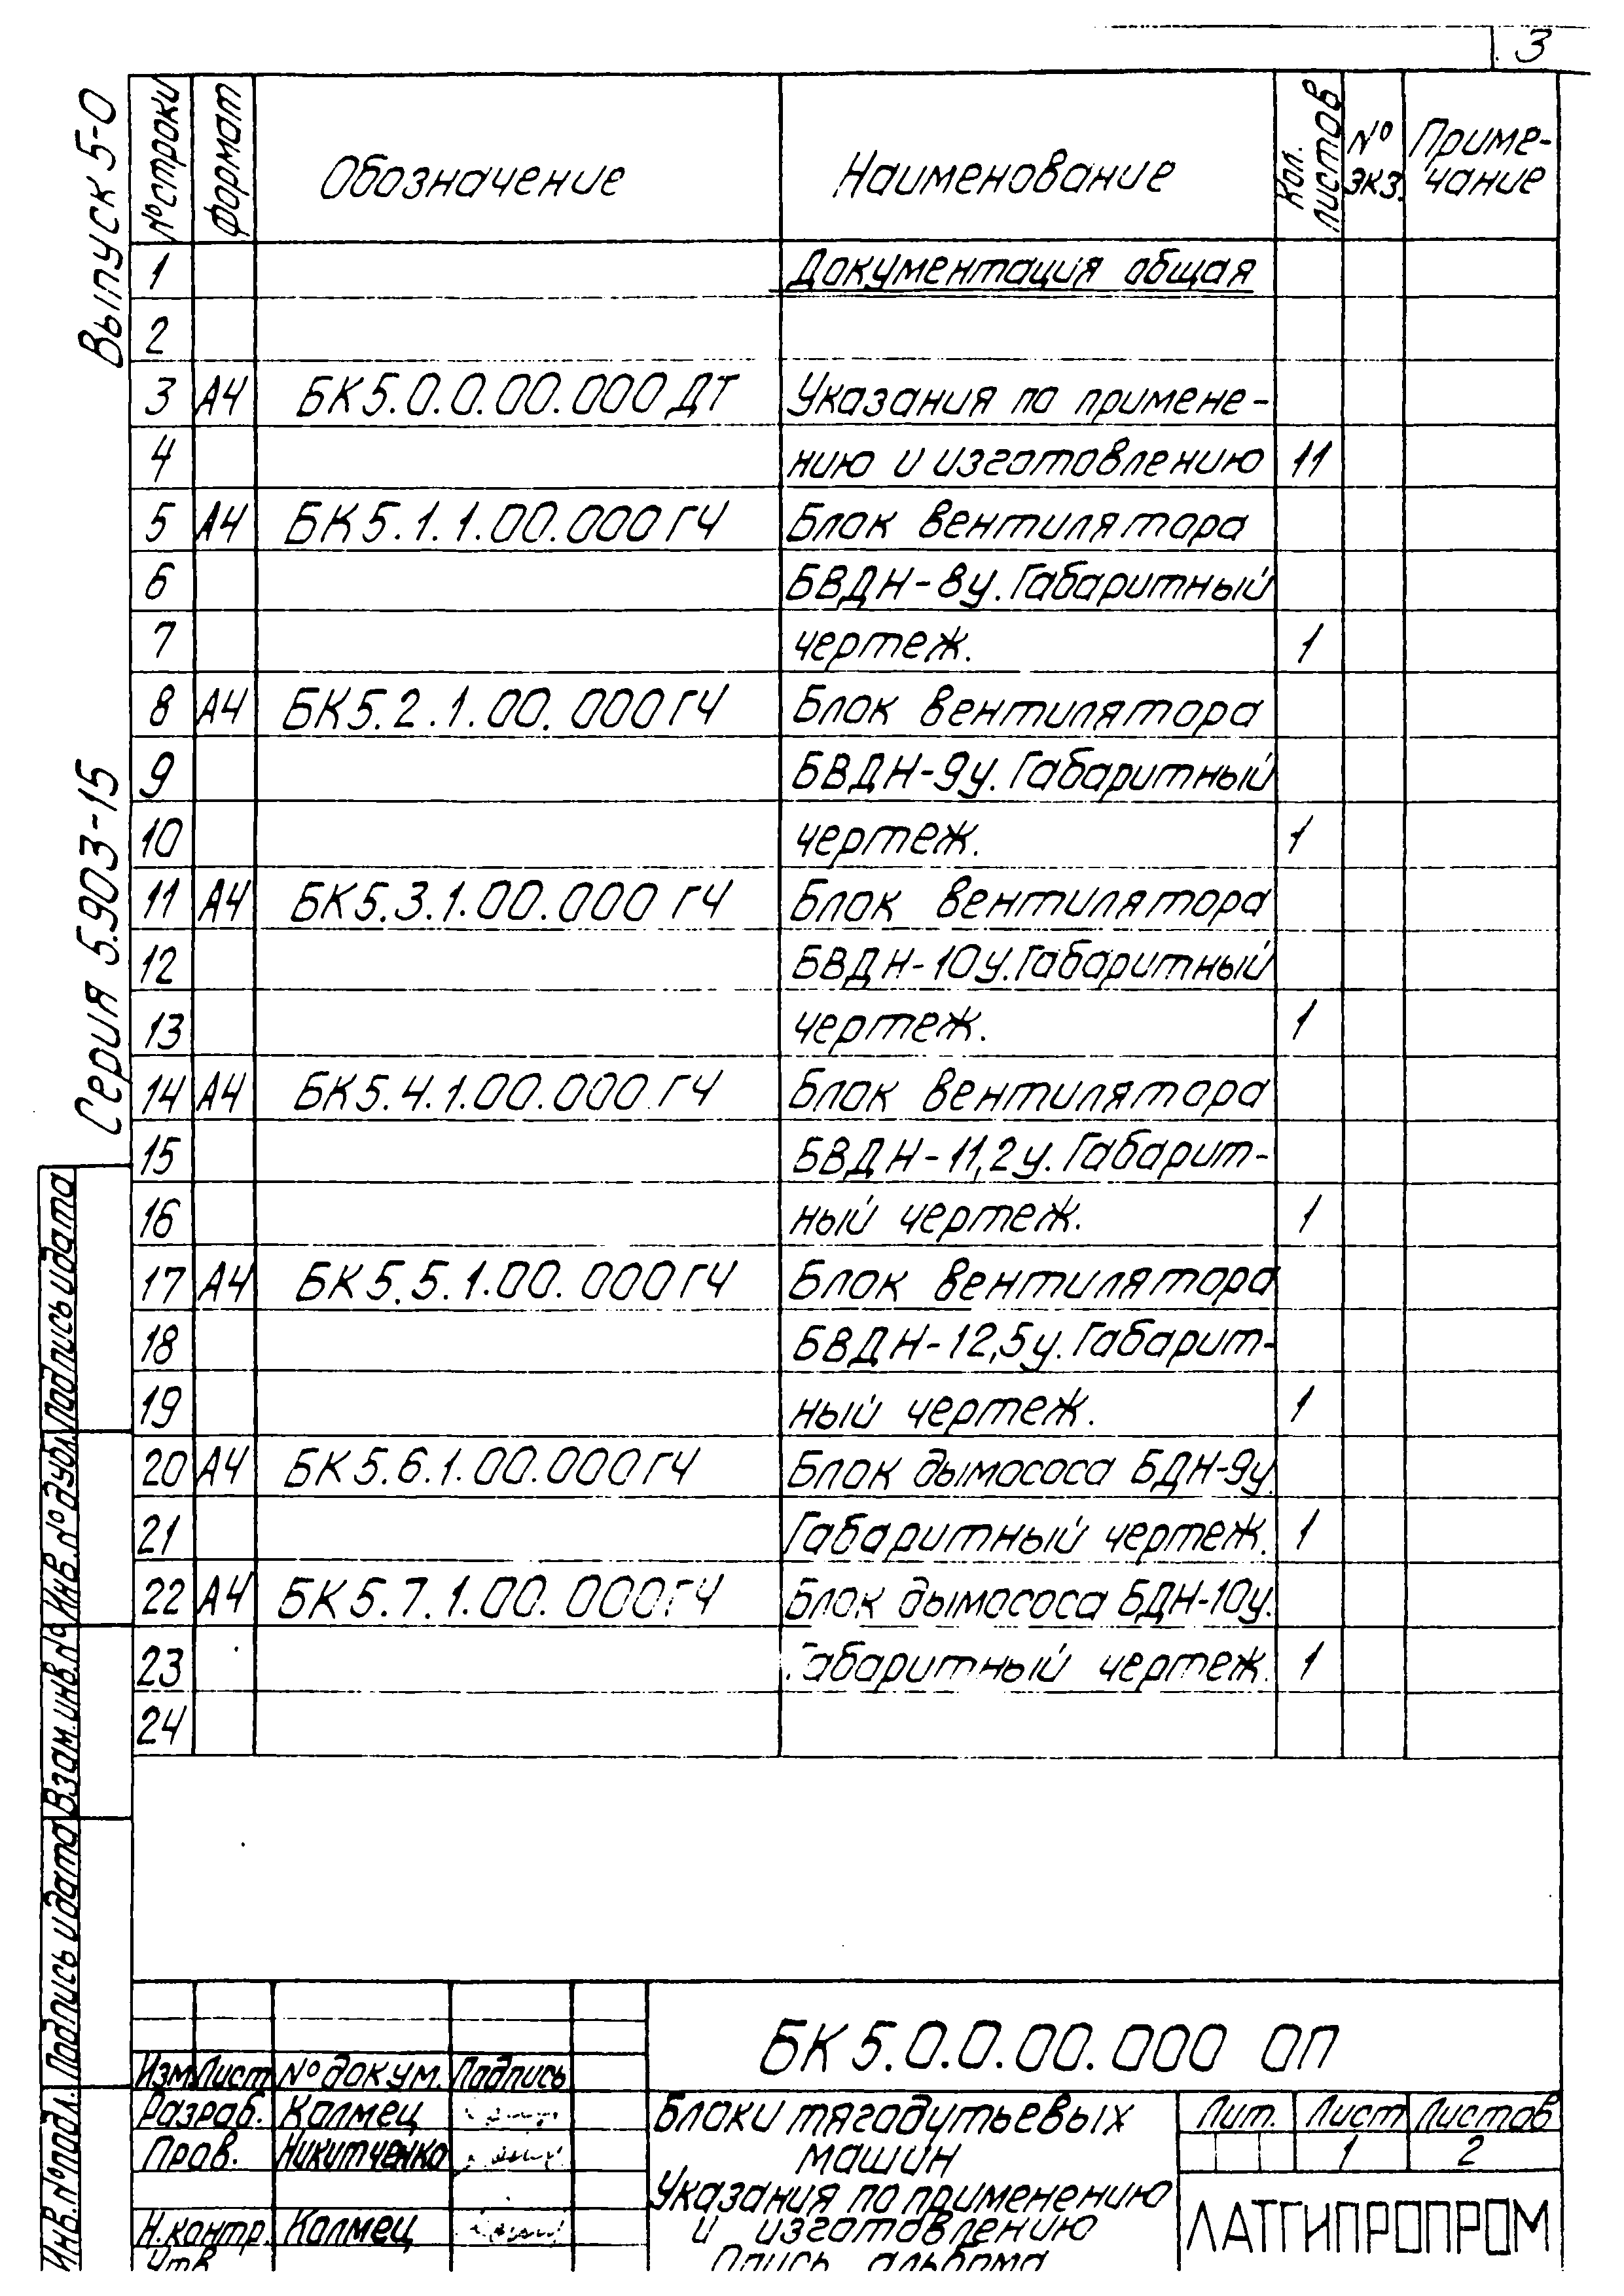 3
Выпуск 5-0
Серия 5.903-15
№ строки Формат Обозначение Наименование Кол. листов № экз. Приме-чание
1 Документация общая
2
3 А4 БК5.0.0.00.000 ДТ Указания по примене-
4 нию и изготовлению 11
5 А4 БК5.1.1.00.000 ГЧ Блок вентилятора
6 БВДН-8у. Габаритный
7 чертеж. 1
8 А4 БК5.2.1.00.000 ГЧ Блок вентилятора
9 БВДН-9у. Габаритный
10 чертеж. 1
11 А4 БК5.3.1.00.000 ГЧ Блок вентилятора
12 БВДН-10у. Габаритный
13 чертеж. 1
14 А4 БК5.4.1.00.000 ГЧ Блок вентилятора
15 БВДН-11,2у. Габарит-
16 ный чертеж. 1
17 А4 БК5.5.1.00.000 ГЧ Блок вентилятора
18 БВДН-12,5у. Габарит-
19 ный чертеж. 1
20 А4 БК5.6.1.00.000 ГЧ Блок дымососа БДН-9у.
21 Габаритный чертеж. 1
22 А4 БК5.7.1.00.000 ГЧ Блок дымососа БДН-10у.
23 Габаритный чертеж. 1
24
Инв. № подл. Подпись и дата Взам. инв. № Инв. № дубл. Подпись и дата
БК5.0.0.00.000 ОП
Изм. Лист № докум. Подпись
Разраб. Калмец
Пров. Никитченко
Н. контр. Калмец
Утв
Блоки тягодутьевых
машин
Указания по применению
и изготовлению
Опись альбома
Лит. Лист Листов
1 2
ЛАТГИПРОПРОМ